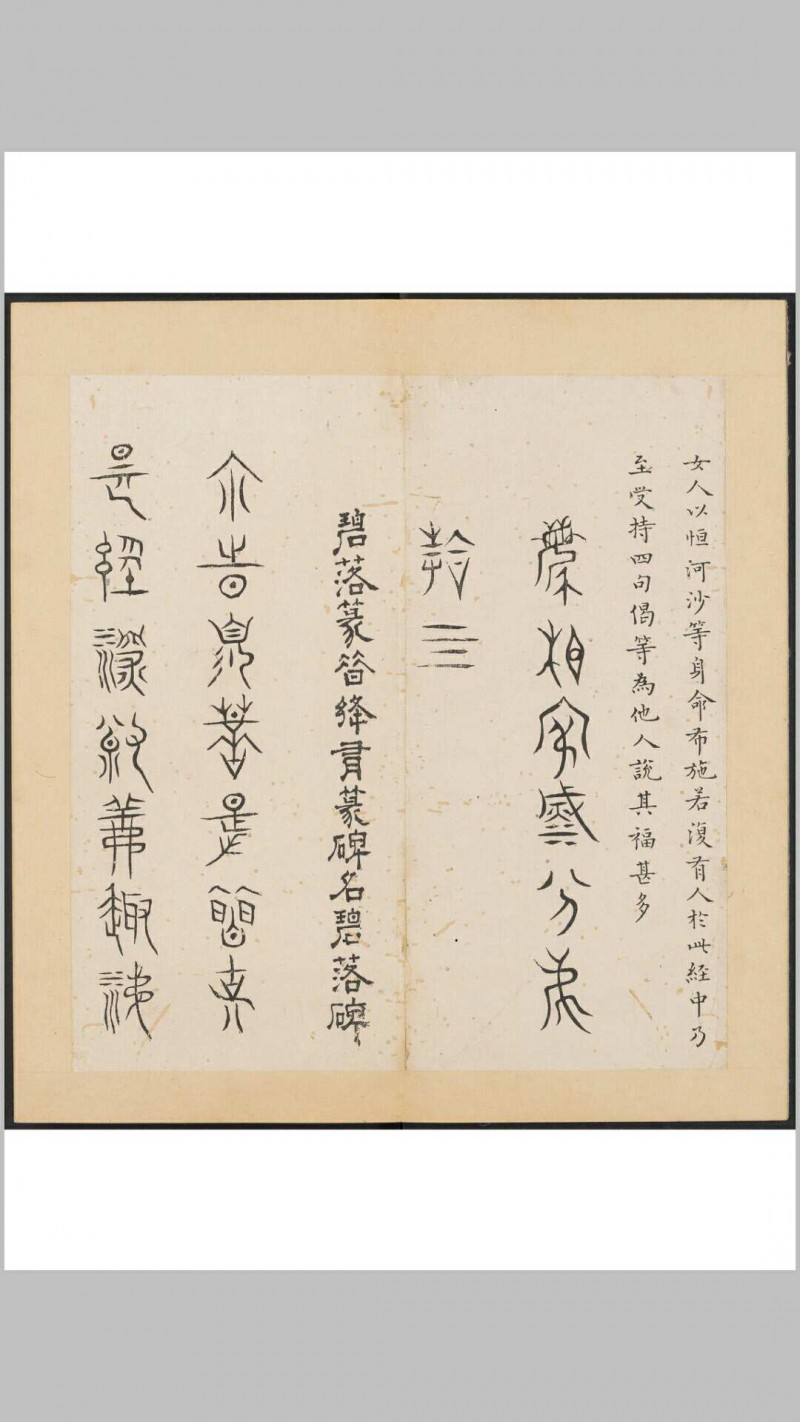 女人以恒河沙等身命布施若復有人於此経中乃
至受持四句偈等為他人說其福甚多
離相寂滅分弟
十四
碧落篆絳篆碑名碧落碑
尒時須菩提聞說
是經深解義趣涕